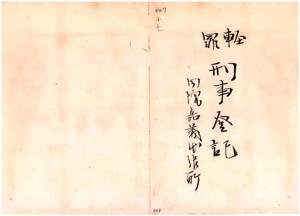 輕罪
刑事登記
院嘉義出張所